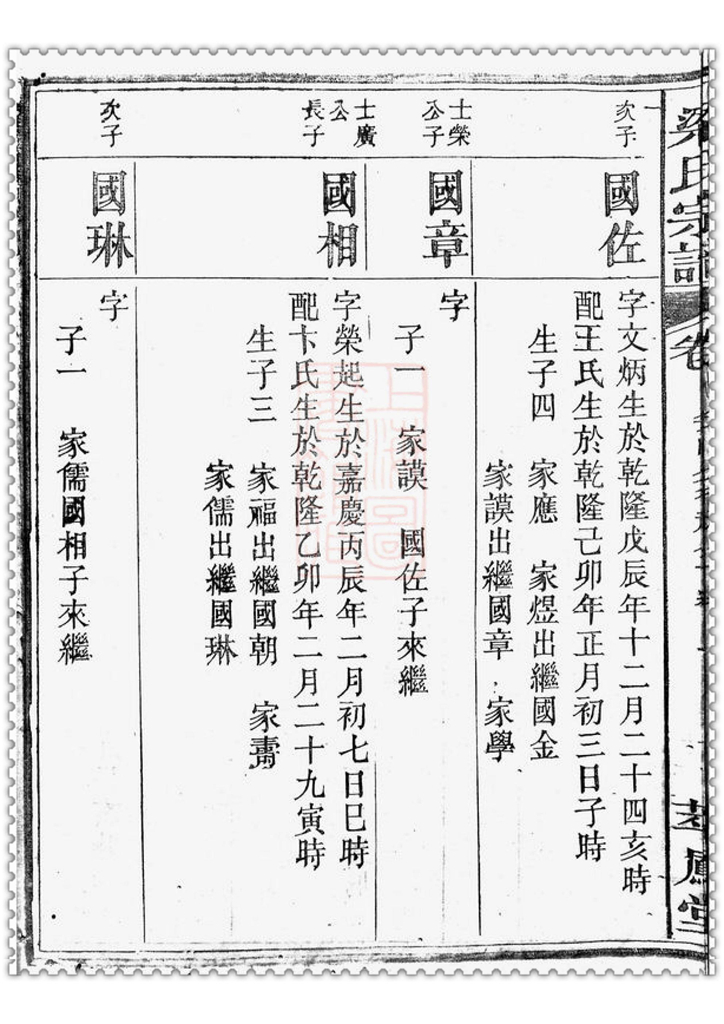 梁氏宗譜
卷
次子
國佐
字文炳生於乾隆戊辰年十二月二十四亥時
配王氏生於乾隆己卯年正月初三日子時
生子四 家應 家煜出繼國金
家謨出繼國章 家學
士榮
公子
國章
字
子一 家謨 國佐子來繼
士廣
公
長子
國相
字榮起生於嘉慶丙辰年二月初七日巳時
配卞氏生於乾隆乙卯年二月二十九寅時
生子三 家福出繼國朝 家燾
家儒出繼國琳
次子
國琳
字
子一 家儒國相子來繼